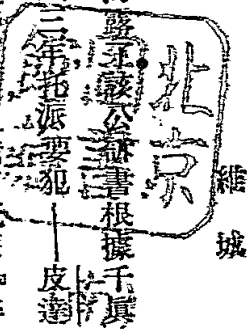 維城
北京
該公訴書根據千眞
三年托派要犯——皮達